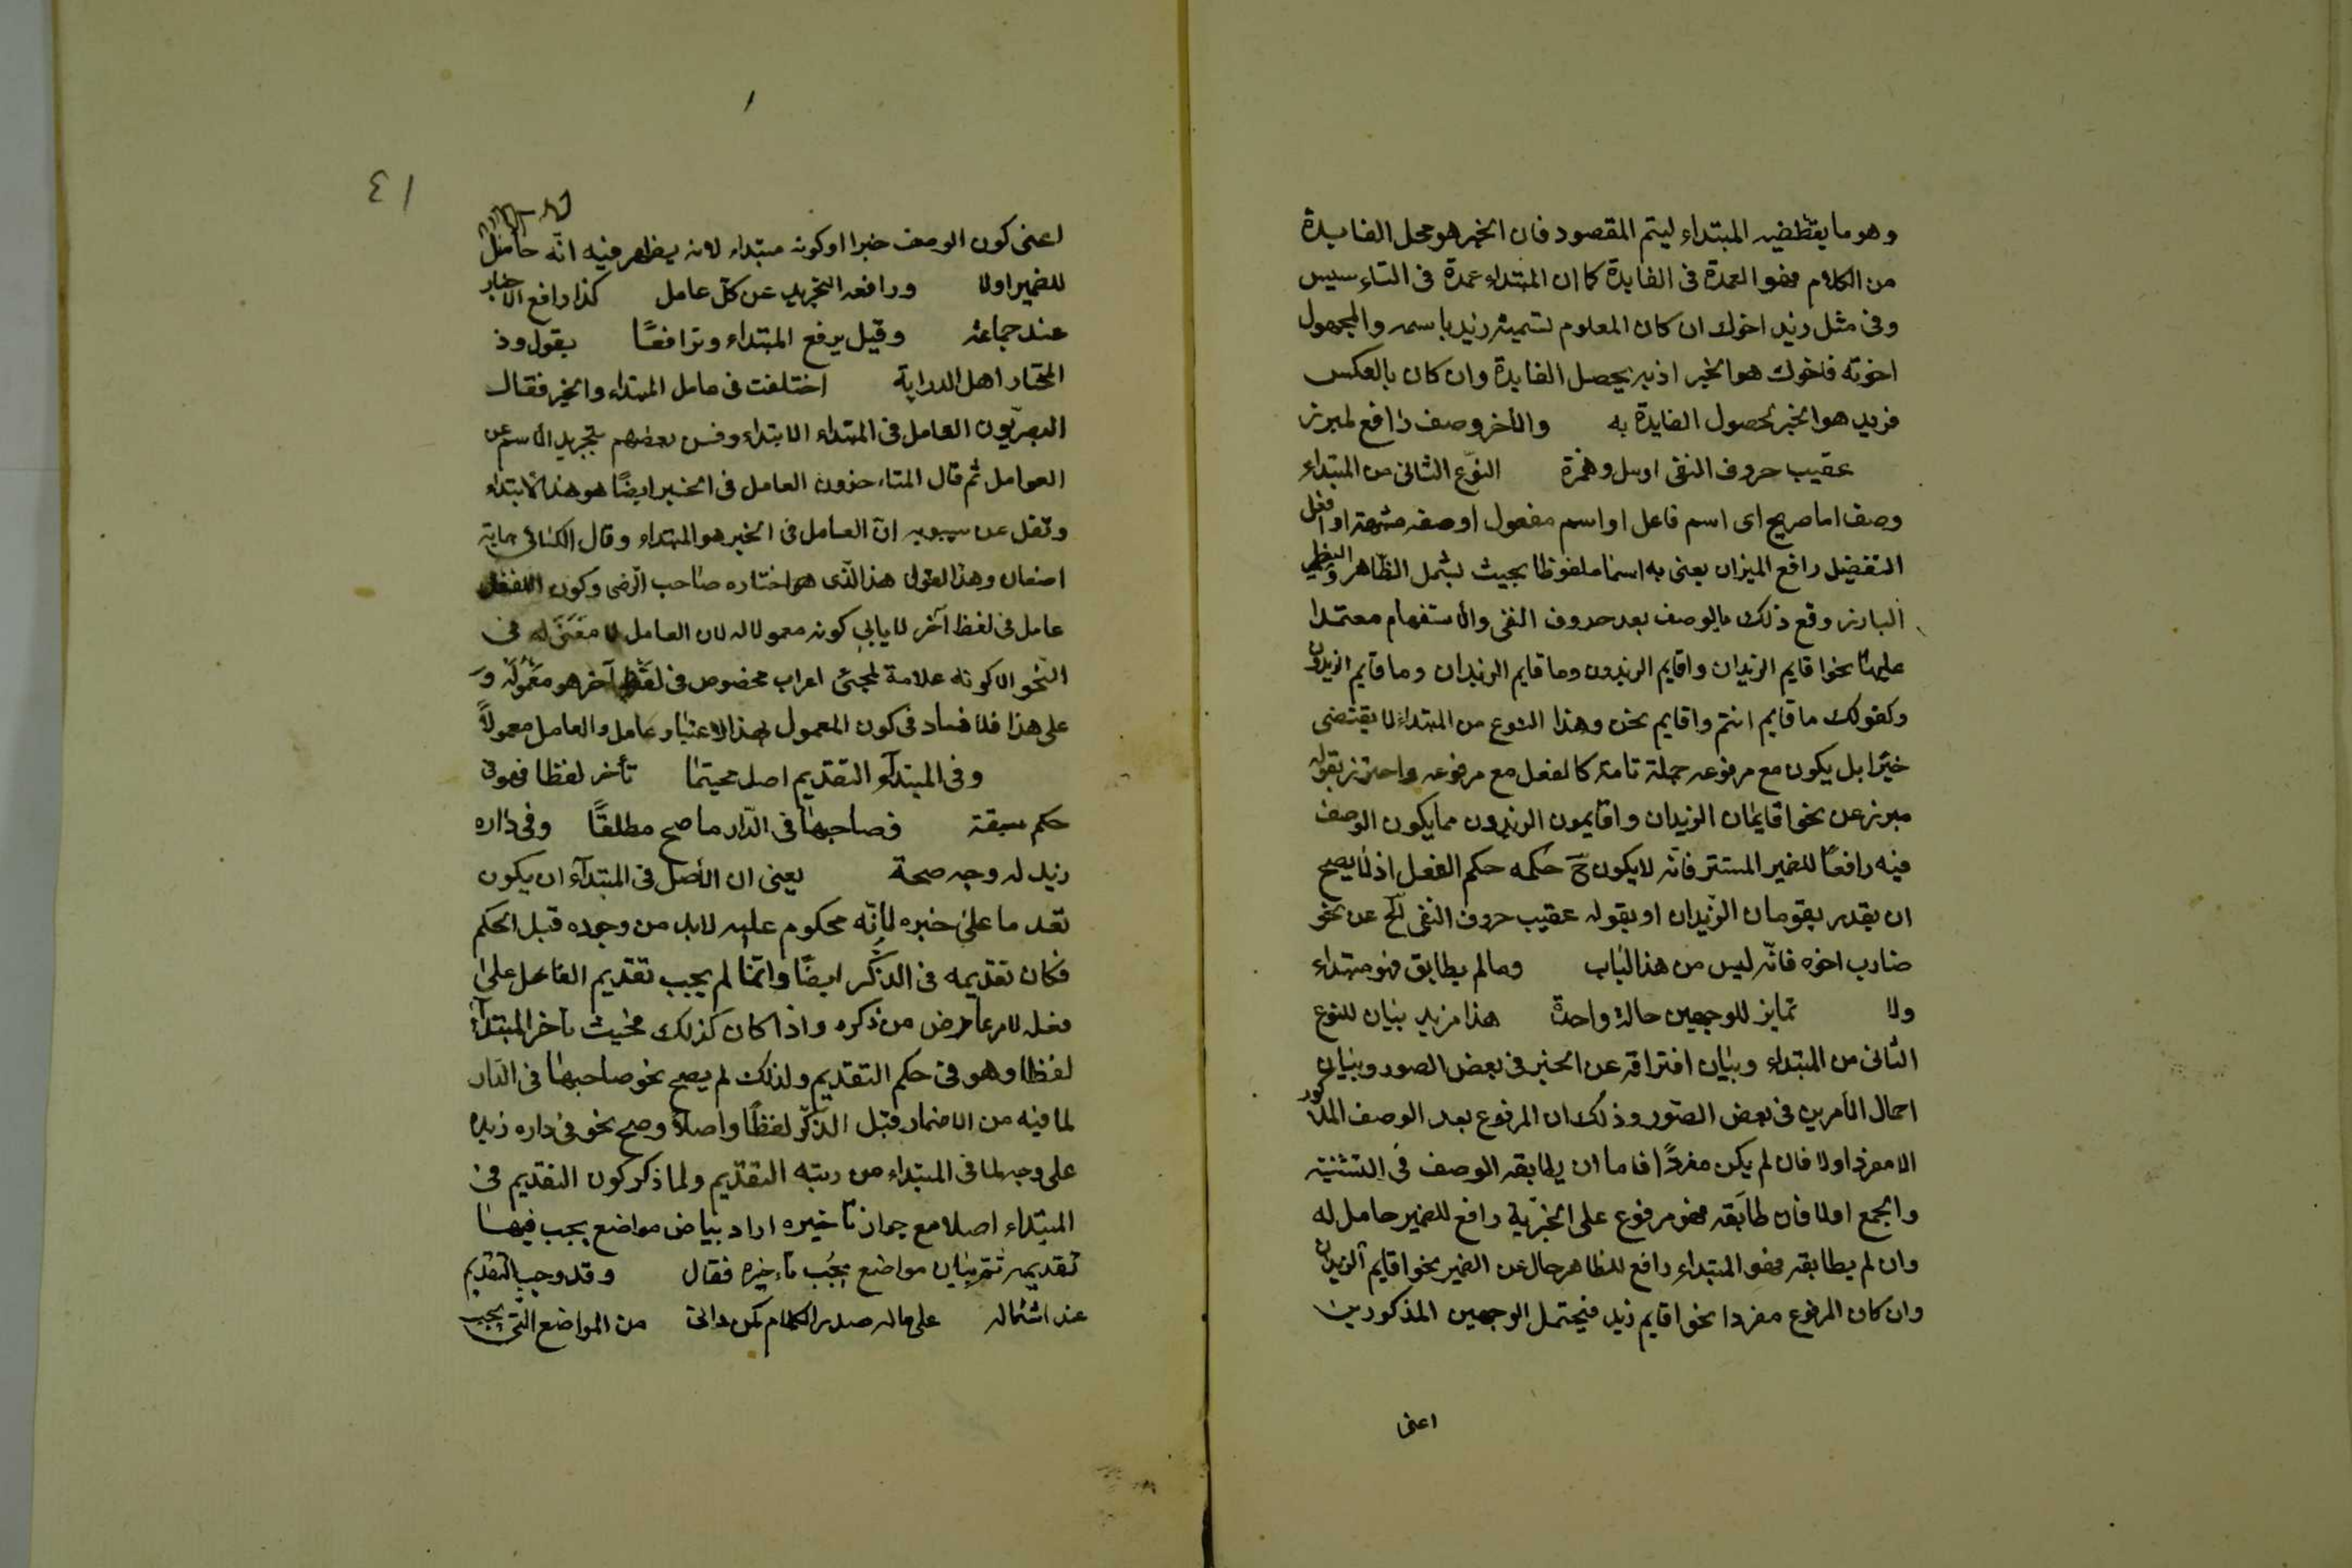 وهو ما يقتضيه المبتداء ليتم المقصود فان الخبر هو محل الفايدة
من الكلام فهو العمدة فى الفايدة كما ان المبتداء عمدة فى التاءسيس
وفى مثل زيد اخوك ان كان المعلوم تسميته زيد باسمه والمجهول
اخوته فاخوك هو الخبر اذ به يحصل الفايدة وان كان بالعكس
فزيد هو الخبر لحصول الفايدة به والآخر وصف رافع لمبرز
عقيب حروف النفى او هل وهمزة النوع الثانى من المبتداء
وصف اما صريح اى اسم فاعل او اسم مفعول او صفة مشبهة او افعل
التفضيل رافع الميزان يعنى به اسما ملفوظا بحيث يشمل الظاهر والضمير
البارز وقع ذلك الوصف بعد حروف النفى والاستفهام معتمدا
عليهما نحو اقايم الزيدان واقايم الزيدون وما قايم الزيدان وما قايم الزيدون
وكقولك ما قايم انتم واقايم نحن وهذا النوع من المبتداء لا يقتضى
خبرا بل يكون مع مرفوعه جملة تامة كالفعل مع مرفوعه واحترز بقوله
مبرز عن نحو اقايمان الزيدان واقايمون الزيدون مما يكون الوصف
فيه رافعا للضمير المستتر فانه لا يكون ح حكمه حكم الفعل اذ لا يصح
ان يقدر يقومان الزيدان او بقوله عقيب حروف النفى الخ عن نحو
ضارب اخوه فانه ليس من هذا الباب وما لم يطابق فهو مبتداء
ولا تمايز للوجهين حالة واحدة هذا مزيد بيان للنوع
الثانى من المبتداء وبيان افتراقه عن الخبر فى بعض الصور وبيان
احمال الأمرين فى بعض الصور وذلك ان المرفوع بعد الوصف المذكور
اما مفرد اولا فان لم يكن مفردا فاما ان يطابقه الوصف فى التثنية
والجمع اولا فان طابقه فهو مرفوع على الخبرية رافع للضمير حامل له
وان لم يطابقه فهو المبتداء رافع للظاهر خال عن الضمير نحو اقايم الزيدان
وان كان المرفوع مفردا نحو اقايم زيد فيحتمل الوجهين المذكورين
اعنى
٤١
اعنى كون الوصف خبرا او كونه مبتداء لانه يظهر فيه انه حامل
للضمير اولا ورافعه التجريد عن كل عامل كذا رافع الاخبار
عند جماعة وقيل يرفع المبتداء وترافعا يقول وذ
المختار اهل الدراية اختلفت فى عامل المبتداء والخبر فقال
البصريون العامل فى المبتداء الابتداء وفسر بعضهم بتجريد الاسم عن
العوامل ثم قال المتاءخرون العامل فى الخبر ايضا هو هذا الابتداء
ونقل عن سيبويه ان العامل فى الخبر هو المبتداء وقال الكسائى
وهذا القول هذا الذى هو اختاره صاحب الرضى وكون اللفظ
عامل فى لفظ آخر لا يابى كونه معمولا له لان العامل لا معنى له فى
النحو الا كونه علامة لمجئ اعراب مخصوص فى لفظ آخر هو معموله و
على هذا فلا فساد فى كون المعمول بهذا الاعتبار عامل والعامل معمولا
وفى المبتدآء التقديم اصل فحيثما تأخر لفظا فهو فى
حكم سبقة فصاحبها فى الدار ما صح مطلقا وفى داره
زيد له وجه صحة يعنى ان الأصل فى المبتدآء ان يكون
تقد ما على خبره لأنه محكوم عليه لابد من وجوده قبل الحكم
فكان تقديمه فى الذكر ايضا وانما لم يجب تقديم الفاعل على
فعله لامر عارض من ذكره واذا كان كذلك فحيث تاخر المبتدآء
لفظا وهو فى حكم التقديم ولذلك لم يصح نحو صاحبها فى الدار
لما فيه من الاضمار قبل الذكر لفظا واصلا وصح نحو فى داره زيد
على وجه لما فى المبتداء من رتبة التقديم ولما ذكر كون التقديم فى
المبتداء اصلا مع جواز تاخيره اراد بيان مواضع يجب فيها
تقديمه ثم بيان مواضع يجب تاءخيره فقال وقد وجب التقديم
عند اشتماله على ما له صدر الكلام كمن دانى من المواضع التى يجب